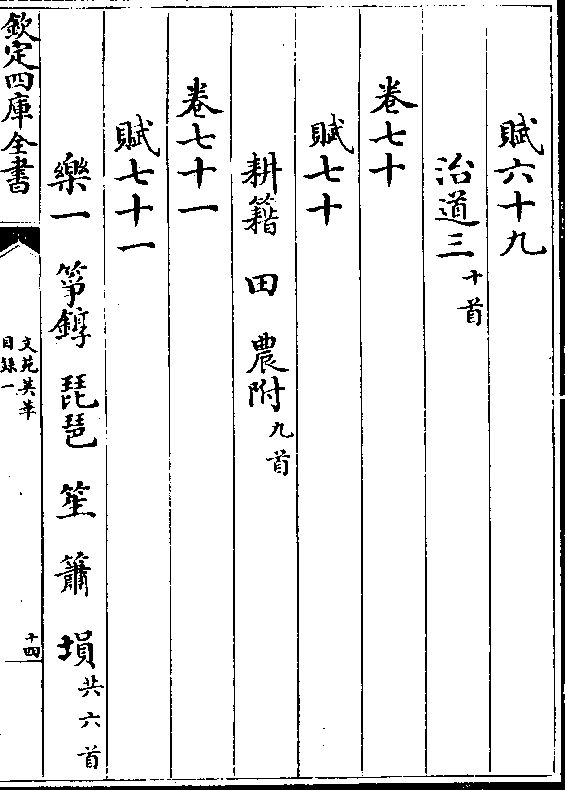 賦六十九
治道三十首
卷七十
賦七十
耕籍 田 農附九首
卷七十一
賦七十一
樂一 箏錞 琵琶 笙 簫 塤共六首
欽定四庫全書
文苑英華
目録一
十四